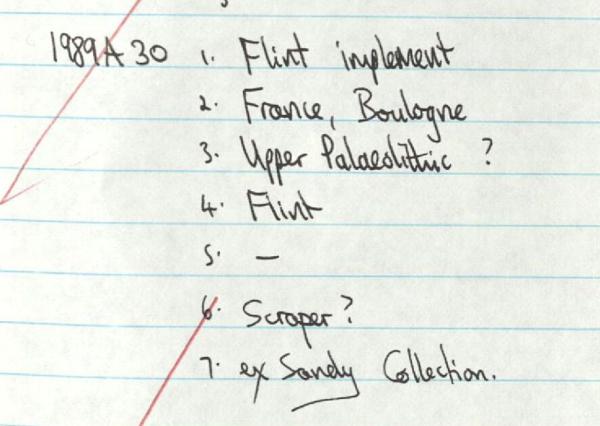 1989A 30 1. Flint implement
2. France, Boulogne
3. Upper Palaeolithic ?
4. Flint
5. —
6. Scraper?
7. ex Sandy Collection.